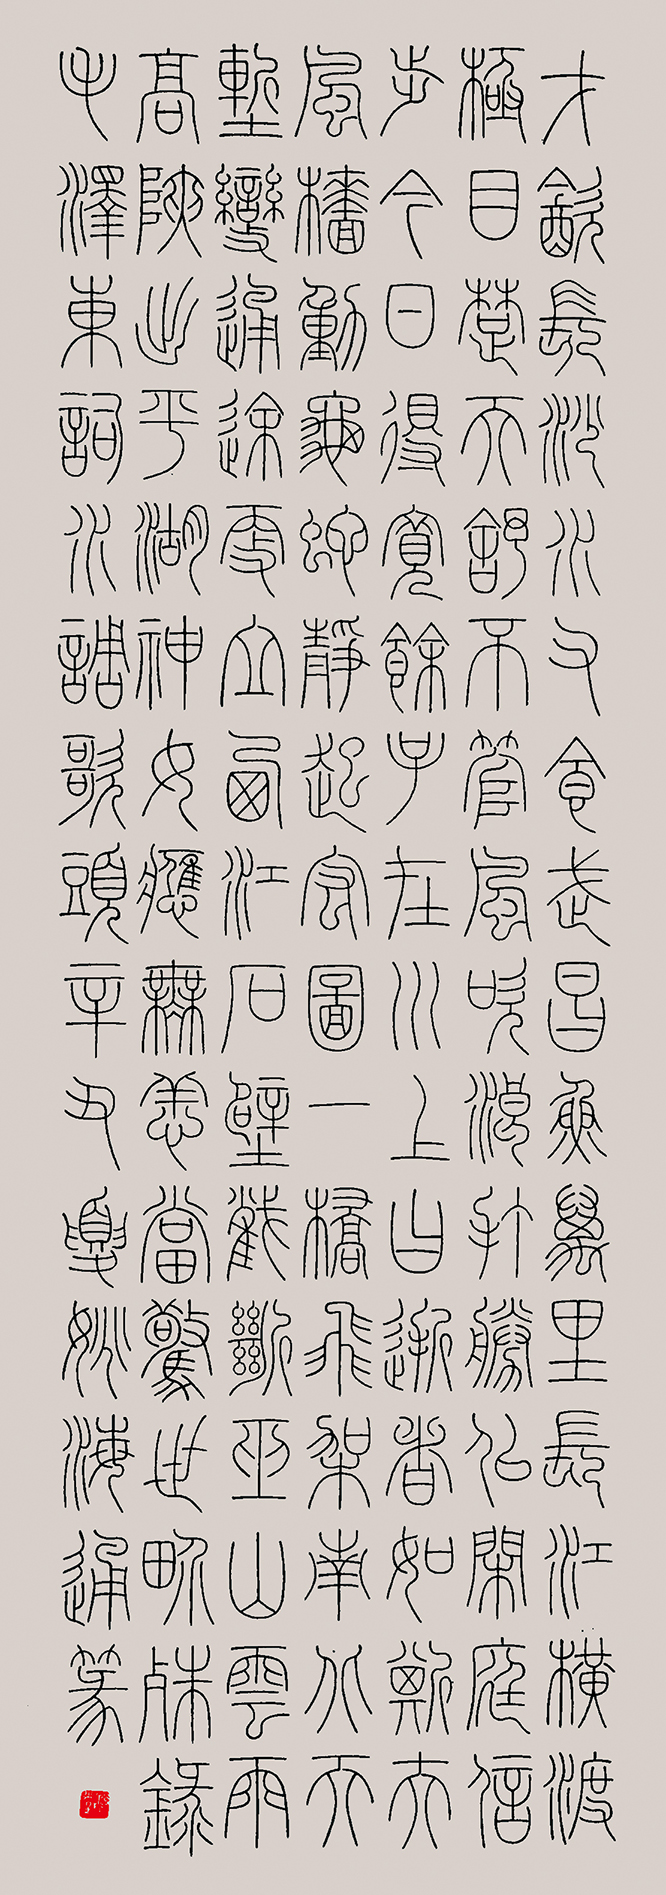 才飲長沙水又食武昌魚萬里長江橫渡
極目楚天舒不管風吹浪打勝似閑庭信
步今日得寬餘子在川上曰逝者如斯夫
風檣動龜蛇靜起宏圖一橋飛架南北天
塹變通途更立西江石壁截斷巫山雲雨
高峽出平湖神女應無恙當驚世界殊錄
毛澤東詞水調歌頭辛丑夏姚海通篆